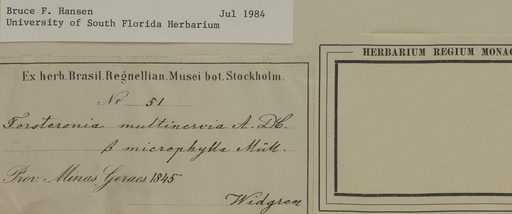 Bruce F. Hansen Jul 1984
University of South Florida Herbarium
HERBARIUM REGIUM MONAC
Ex herb. Brasil. Regnellian. Musei bot. Stockholm.
No 51
Forsteronia multinervia A. DC.
β microphylla Müll.
Prov. Minas Geraes, 1845
Widgren